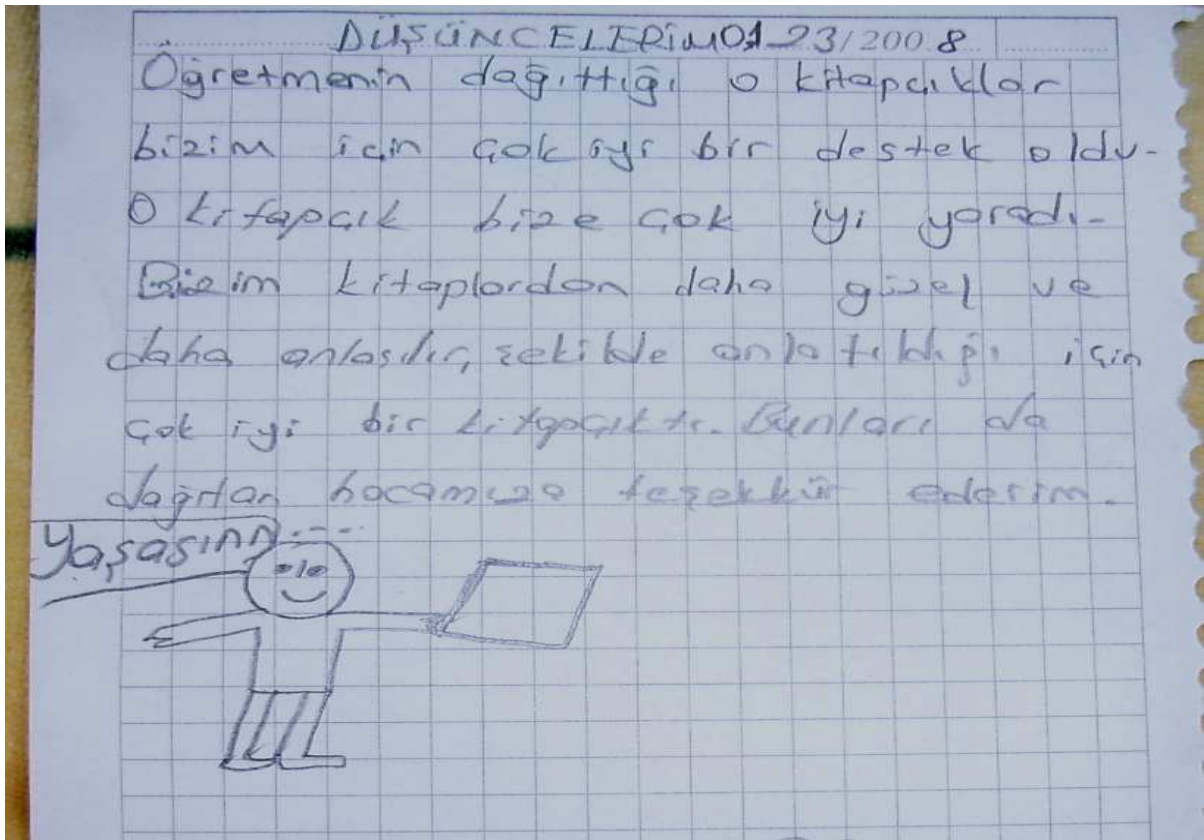 DÜŞÜNCELERİM 01 23/2008
Öğretmenin dağıttığı o kitapçıklar
bizim için çok iyi bir destek oldu.
O kitapçık bize çok iyi yaradı.
Bizim kitaplardan daha güzel ve
daha anlaşılır şekilde anlatıldığı için
çok iyi bir kitapçıktı. Bunları da
dağıtan hocamıza teşekkür ederim.
Yaşasınn....